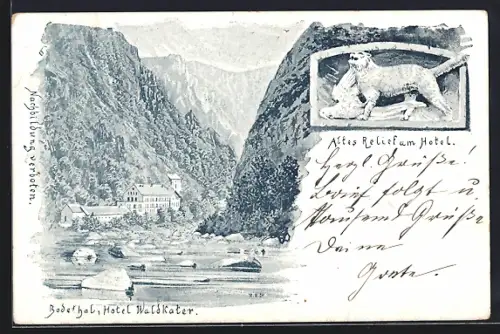 Nachbildung verboten.
Altes Relief am Hotel.
Herzl. Grüße!
Brief folgt u.
tausend Grüße
Deine
Grete.
Bodethal, Hotel Waldkater.